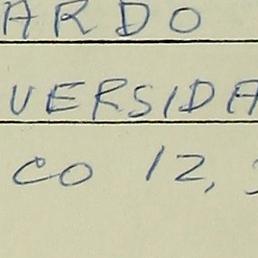 ARDO
VERSIDA
CO 12,